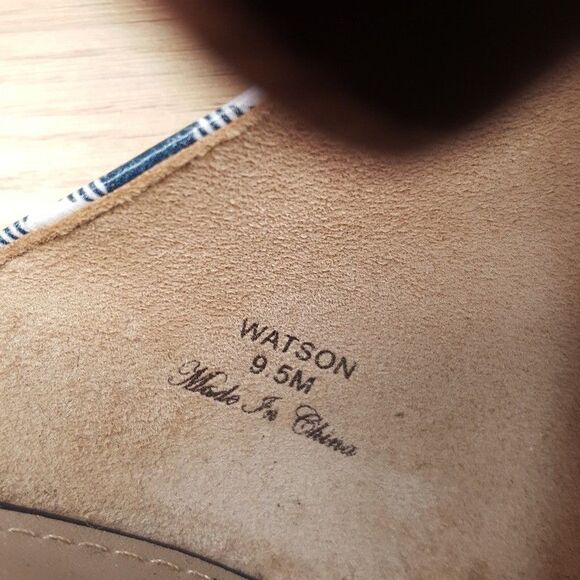 WATSON
9.5M
Made In China